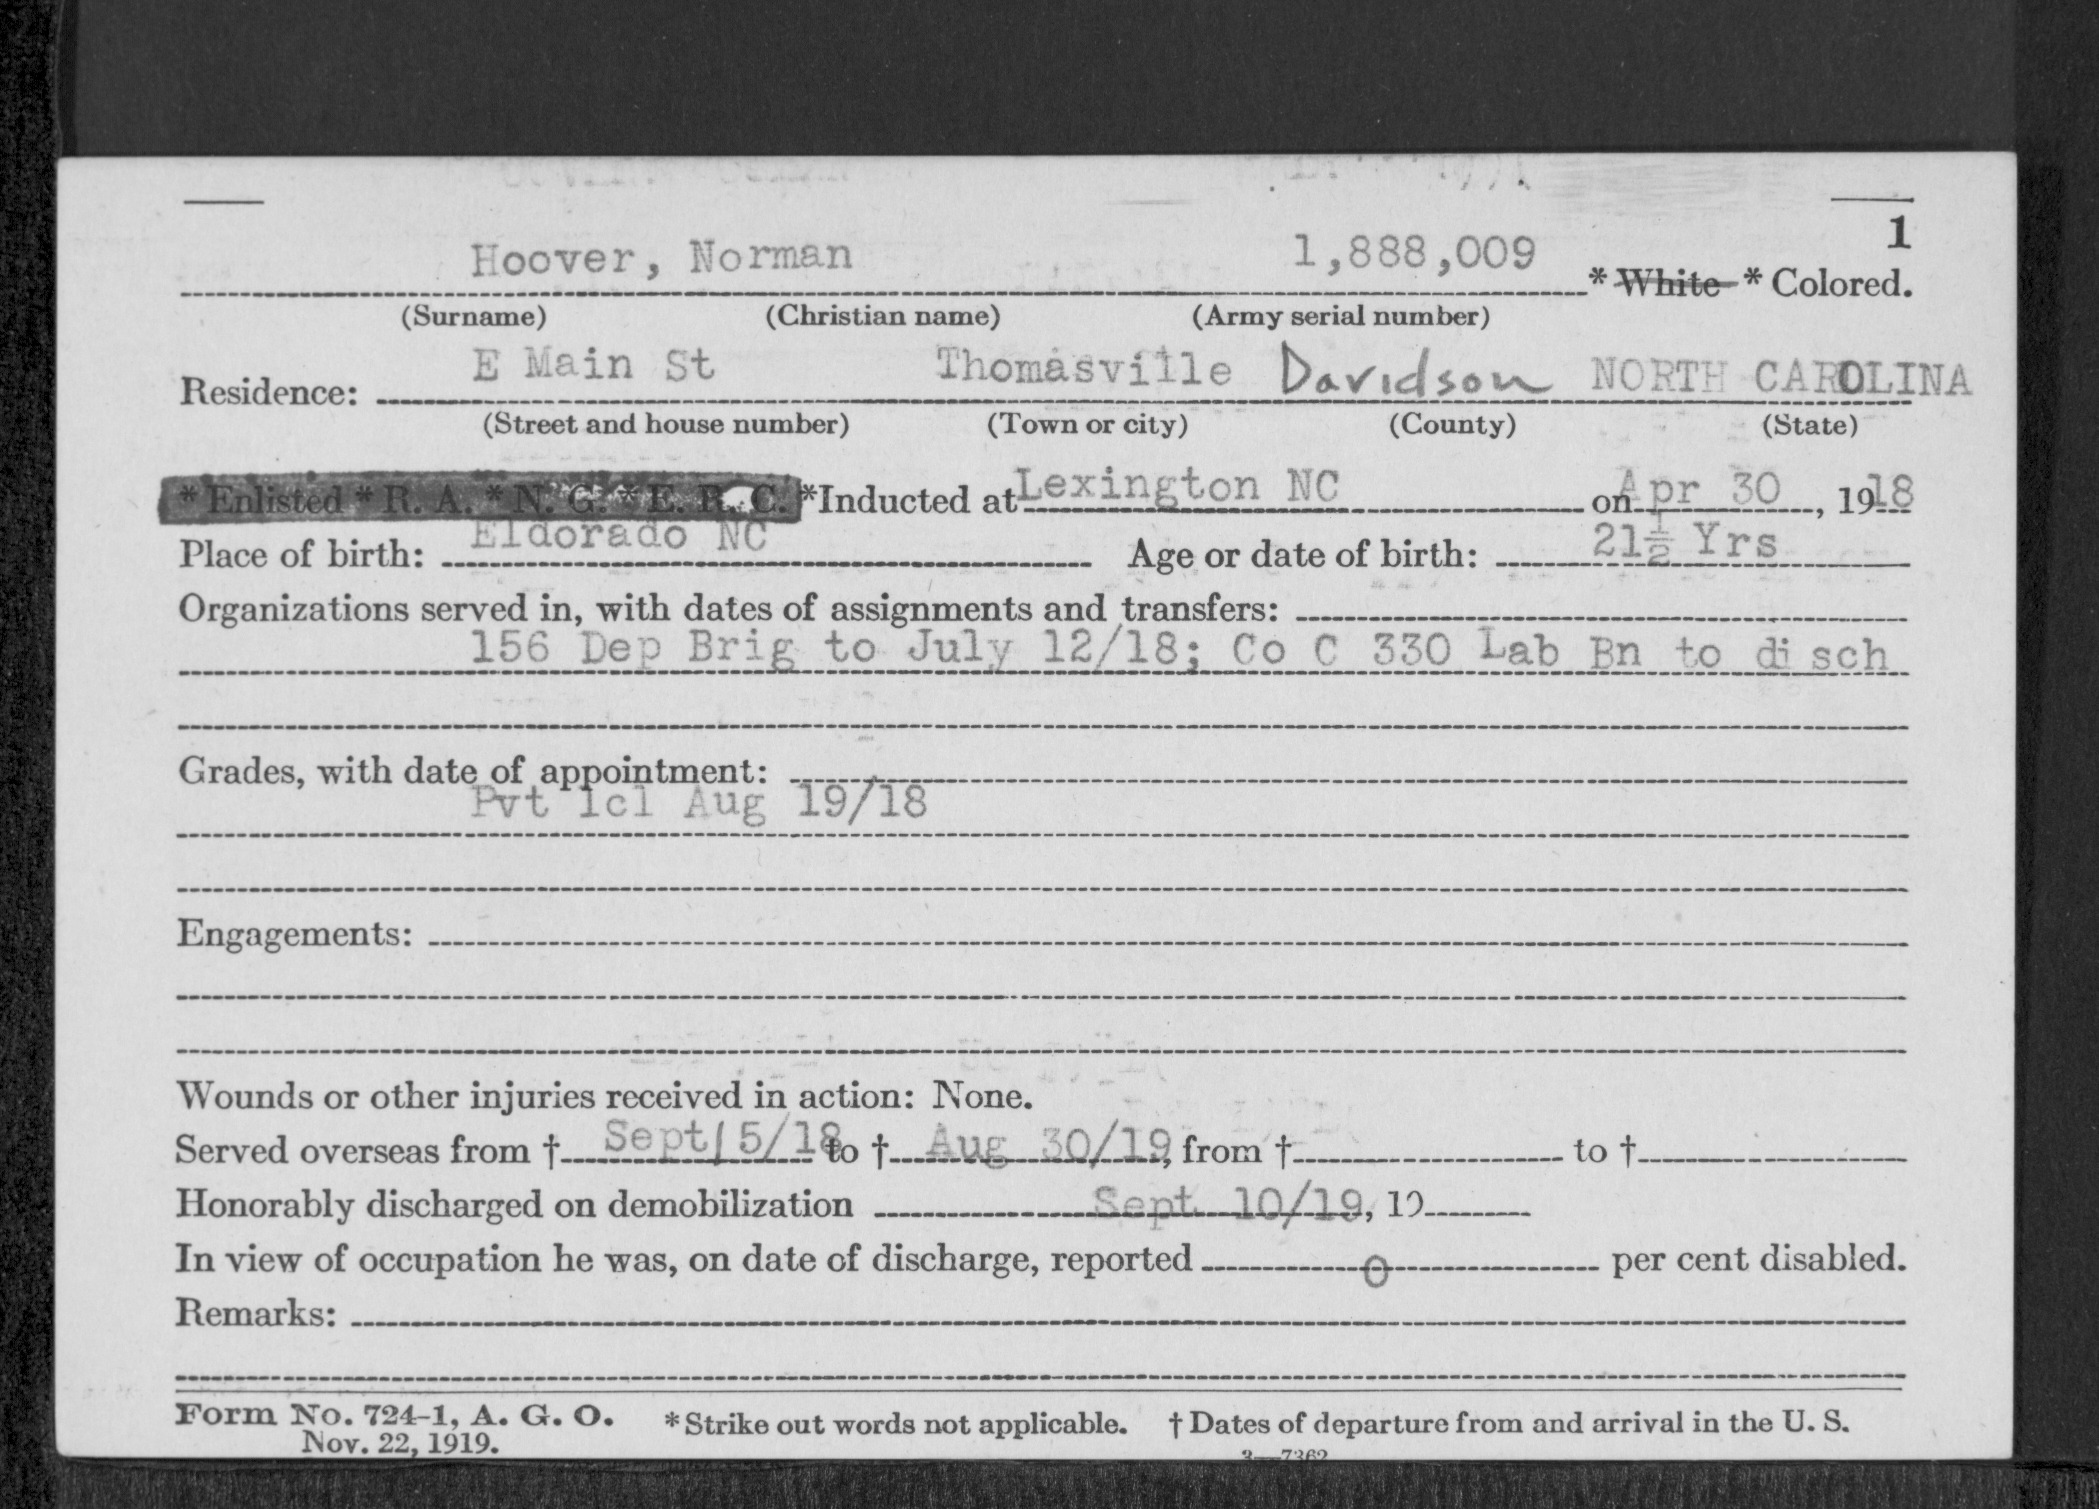 1
Hoover, Norman 1,888,009 * White * Colored.
(Surname) (Christian name) (Army serial number)
Residence: E Main St Thomasville Davidson NORTH CAROLINA
(Street and house number) (Town or city) (County) (State)
* Enlisted * R. A. * N. G. * E. R. C. *Inducted at Lexington NC on Apr 30, 1918
Place of birth: Eldorado NC Age or date of birth: 21½ Yrs
Organizations served in, with dates of assignments and transfers:
156 Dep Brig to July 12/18; Co C 330 Lab Bn to disch
Grades, with date of appointment:
Pvt 1cl Aug 19/18
Engagements:
Wounds or other injuries received in action: None.
Served overseas from † Sept 5/18 to † Aug 30/19, from † to †
Honorably discharged on demobilization Sept 10/19, 19
In view of occupation he was, on date of discharge, reported 0 per cent disabled.
Remarks:
Form No. 724-1, A. G. O. * Strike out words not applicable. † Dates of departure from and arrival in the U. S.
Nov. 22, 1919. 3—7362